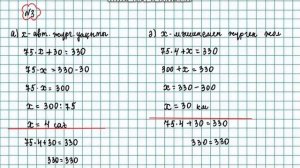 №3
а) х - авт. жүрг уақыты
75·х + 30 = 330
75·х = 330 - 30
75·х = 300
х = 300 : 75
х = 4 сағ
75·4 + 30 = 330
330 = 330
х - мышпен жүрген жол
75·4 + х = 330
300 + х = 330
х = 330 - 300
х = 30 км
75·4 + 30 = 330
330 = 330